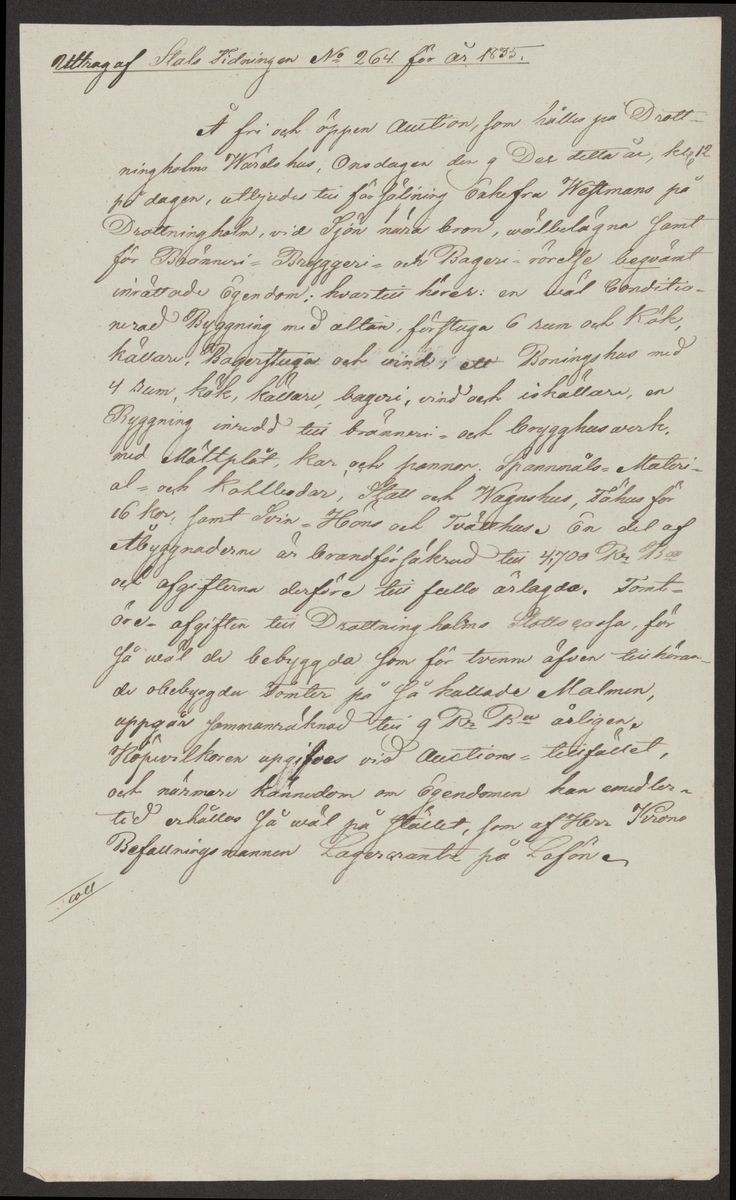 Utdrag af Stats Tidningen No 264. för år 1835.
Å fri och öppen Auction, som hålles på Drott-
ningholms Wärdshus, Onsdagen den 9 Dec detta år, kl 12
på dagen, utbjudes till försäljning Enkefru Westmans på
Drottningholm, vid Sjön nära bron, wälbelägna samt
för Bränneri- Bryggeri- och Bageri-rörelse beqvämt
inrättade Egendom; hvartill hörer: en wäl Conditio-
nerad Byggning med altan, förstuga 6 rum och Kök,
källare, Bagerstuga och vind; ett Boningshus med
4 rum, kök, källare, bageri, vind och iskällare, en
Byggning inredd till bränneri- och brygghuswerk,
med Mältplåt, kar och pannor. Spannmåls- Materi-
al- och Kohlbodar, Stall och Wagnshus, Fähus för
16 kor, samt Svin- Höns och Tvätthus. En del af
Åbyggnaderne är brandförsäkrad till 4,700 Rr Bco
och afgifterna derföre till fullo ärlagda. Tomt-
öre-afgiften till Drottningholms Slottscassa, för
så wäl de bebyggda som för tvenne äfven tillhöran-
de obebyggda Tomter på så kallade Malmen,
uppgår sammanräknad till 9 Rr Bco årligen.
Köpevilkoren uppgifves vid Auctions-tillfället,
och närmare kännedom om Egendomen kan emedler-
tid erhållas så wäl på stället, som af Herr Krono
Befallningsmannen Lagercrantz på Lofön.
coll